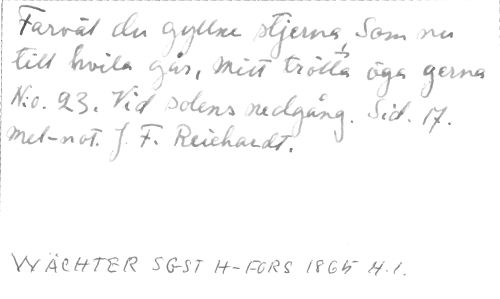 Farväl du gyllne stjerna, Som nu
till hvila går, Mitt trötta öga gerna
N:o. 23. Vid solens nedgång. Sid. 17.
mel-not. J. F. Reichardt.
WÄCHTER SGST H-FORS 1865 H.1.